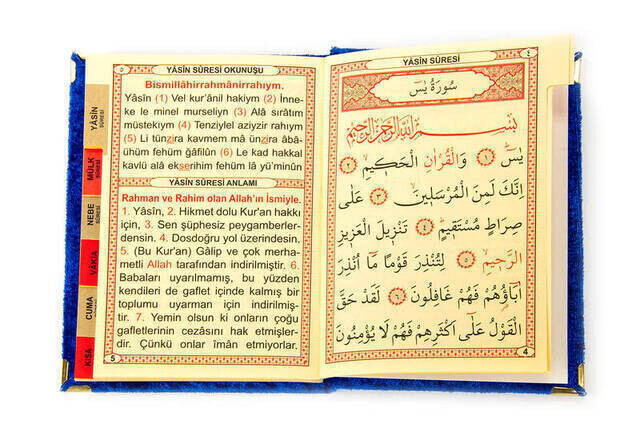 ٥
YÂSÎN SÛRESİ OKUNUŞU
Bismillâhirrahmânirrahıym.
Yâsîn (1) Vel kur'ânil hakiym (2) İnne-
ke le minel murseliyn (3) Alâ sırâtım
müstekıym (4) Tenziylel aziyzir rahıym
(5) Li tünzira kavmem mâ ünzira âbâ-
ühüm fehüm ğâfilûn (6) Le kad hakkal
kavlü alâ ekserihim fehüm lâ yü'minûn
YÂSÎN SÛRESİ ANLAMI
Rahman ve Rahim olan Allah'ın İsmiyle.
1. Yâsîn, 2. Hikmet dolu Kur'an hakkı
için, 3. Sen şüphesiz peygamberler-
densin. 4. Dosdoğru yol üzerindesin.
5. (Bu Kur'an) Gâlip ve çok merha-
metli Allah tarafından indirilmiştir. 6.
Babaları uyarılmamış, bu yüzden
kendileri de gaflet içinde kalmış bir
toplumu uyarman için indirilmiş-
tir. 7. Yemin olsun ki onların çoğu
gafletlerinin cezasını hak etmişler-
dir. Çünkü onlar îmân etmiyorlar.
5
YÂSİN
SÛRESİ
MÜLK
SÛRESİ
NEBE
SÛRESİ
VÂKIA
CUMA
KISA
YÂSÎN SÛRESİ
٤
سُورَةُ يٰسٓ
بِسْمِ اللّٰهِ الرَّحْمٰنِ الرَّحِيمِ
يٰسٓ ﴿١﴾ وَالْقُرْاٰنِ الْحَكِيمِ ﴿٢﴾
اِنَّكَ لَمِنَ الْمُرْسَلِينَ ﴿٣﴾ عَلٰى
صِرَاطٍ مُسْتَقِيمٍ ﴿٤﴾ تَنْزِيلَ الْعَزِيزِ
الرَّحِيمِ ﴿٥﴾ لِتُنْذِرَ قَوْمًا مَٓا اُنْذِرَ
اٰبَٓاؤُهُمْ فَهُمْ غَافِلُونَ ﴿٦﴾ لَقَدْ حَقَّ
الْقَوْلُ عَلٰٓى اَكْثَرِهِمْ فَهُمْ لَا يُؤْمِنُونَ
4